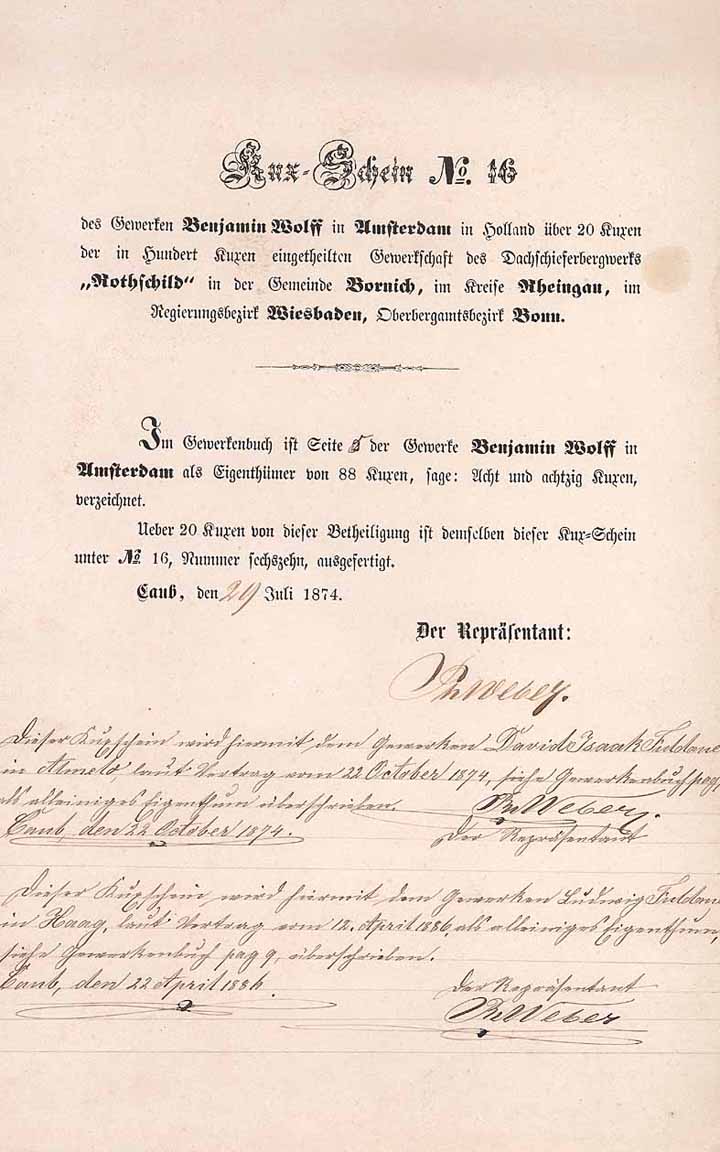 Kux-Schein No. 16
des Gewerken Benjamin Wolff in Amsterdam in Holland über 20 Kuxen
der in Hundert Kuxen eingetheilten Gewerkschaft des Dachschieferbergwerks
„Rothschild" in der Gemeinde Bornich, im Kreise Rheingau, im
Regierungsbezirk Wiesbaden, Oberbergamtsbezirk Bonn.
Im Gewerkenbuch ist Seite 5 der Gewerke Benjamin Wolff in
Amsterdam als Eigenthümer von 88 Kuxen, sage: Acht und achtzig Kuxen,
verzeichnet.
Ueber 20 Kuxen von dieser Betheiligung ist demselben dieser Kux-Schein
unter No. 16, Nummer sechszehn, ausgefertigt.
Caub, den 29 Juli 1874.
Der Repräsentant:
Ph Weber.
Dieser Kuxschein wird hiermit dem Gewerken David Isaak
in Almelo, laut Vertrag vom 22 October 1874, siehe Gewerkenbuch pag,
als alleiniges Eigenthum überschrieben. Ph Weber.
Caub, den 22 October 1874. Der Repräsentant
Dieser Kuxschein wird hiermit dem Gewerken Ludwig
in Haag, laut Vertrag vom 12. April 1886 als alleiniges Eigenthum,
siehe Gewerkenbuch pag 9, überschrieben.
Caub, den 22 April 1886. Der Repräsentant
Ph Weber